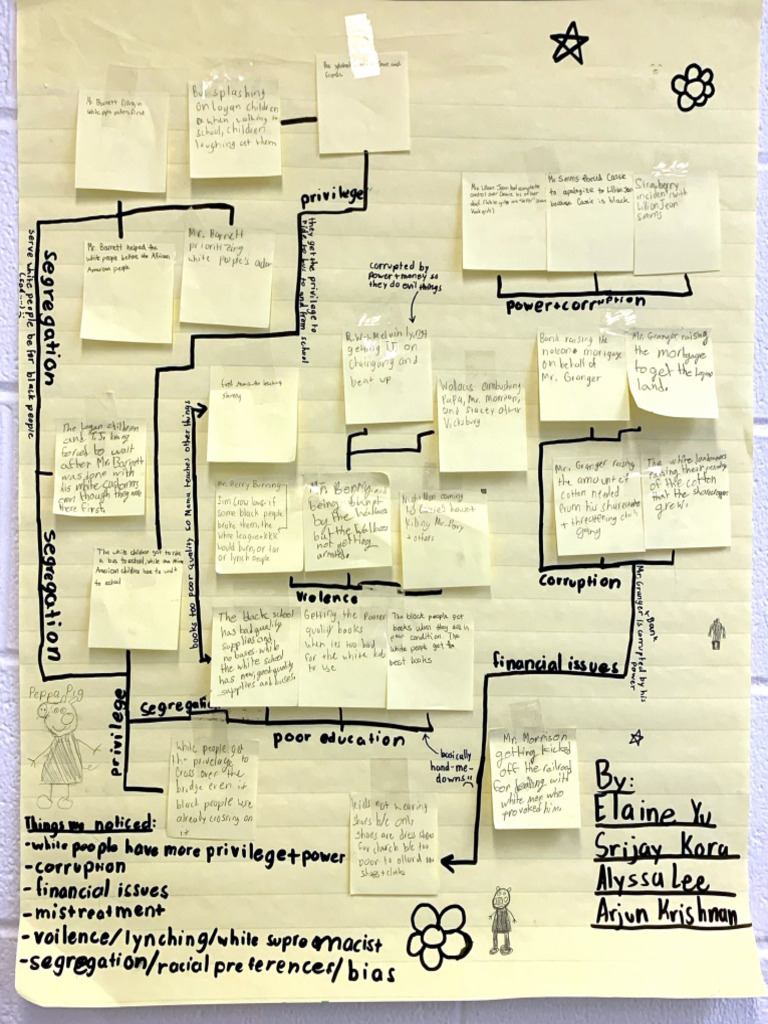 Mr. Barnett filling in
white ppls orders first
Bus splashing
on Logan children
when walking to
school, children
laughing at them
and
friends
privilege
they get the privilege to
ride the bus to and from school
Mr. Barnett helped the
white people before the African
American people
Mr. Barnett
prioritizing
white people's order
segregation
serve white people before black people
Mr. Simms forced Cassie
to apologize to Lillian Jean
because Cassie is black
Strawberry
incident with
Lillian Jean
Simms
power+corruption
corrupted by
power+money so
they do evil things
R.W+Melvin lying
getting TJ on
Chaingang and
beat up
Wallaces ambushing
Papa, Mr. Morrison,
and Stacey after
Vicksburg
Bank raising the
mortgage
on behalf of
Mr. Granger
Mr. Granger raising
the mortgage
to get the Logans
land.
The Logan children
and T.J. being
forced to wait
after Mr. Barnett
was done with
his white customers
even though they were
there first.
books too poor quality so Mama teaches other things
Mr. Berry Burning
Jim Crow laws if
some black people
broke them, the
white league+KKK
would burn, or tar
or lynch people
Mr. Berry
being burnt
by the Wallaces
but the Wallaces
not getting
Night Men coming
killing Mr. Berry
+ others
violence
Mr. Granger raising
the amount of
cotton needed
from his
+ threatening chain
gang
The white landowners
raising their
of the cotton
that the sharecroppers
grew.
corruption
Mr. Granger is corrupted by his
power
+Bank
segregation
The white children got to ride
a bus to school, while the African
American children have to walk
to school
The black school
has bad quality
supplies and
no buses while
the white school
has new, good quality
supplies and buses.
Getting the poorer
quality books
when its too bad
for the white kids
to use
The black people got
books when they are in
poor condition. The
white people get the
best books
financial issues
Peppa Pig
privilege
segregation
poor education
basically
hand-me-
downs
White people got
the privelage to
cross over the
bridge even if
black people were
already crossing on
it
kids not wearing
shoes b/c only
shoes are dress shoes
for church b/c too
poor to afford
Mr. Morrison
getting kicked
off the railroad
for fighting with
white men who
provoked him.
By:
Elaine Yu
Srijay Kora
Alyssa Lee
Arjun Krishnan
Things we noticed:
-white people have more privilege+power
-corruption
-financial issues
-mistreatment
-voilence/lynching/while supremacist
-segregation/racial preferences/bias